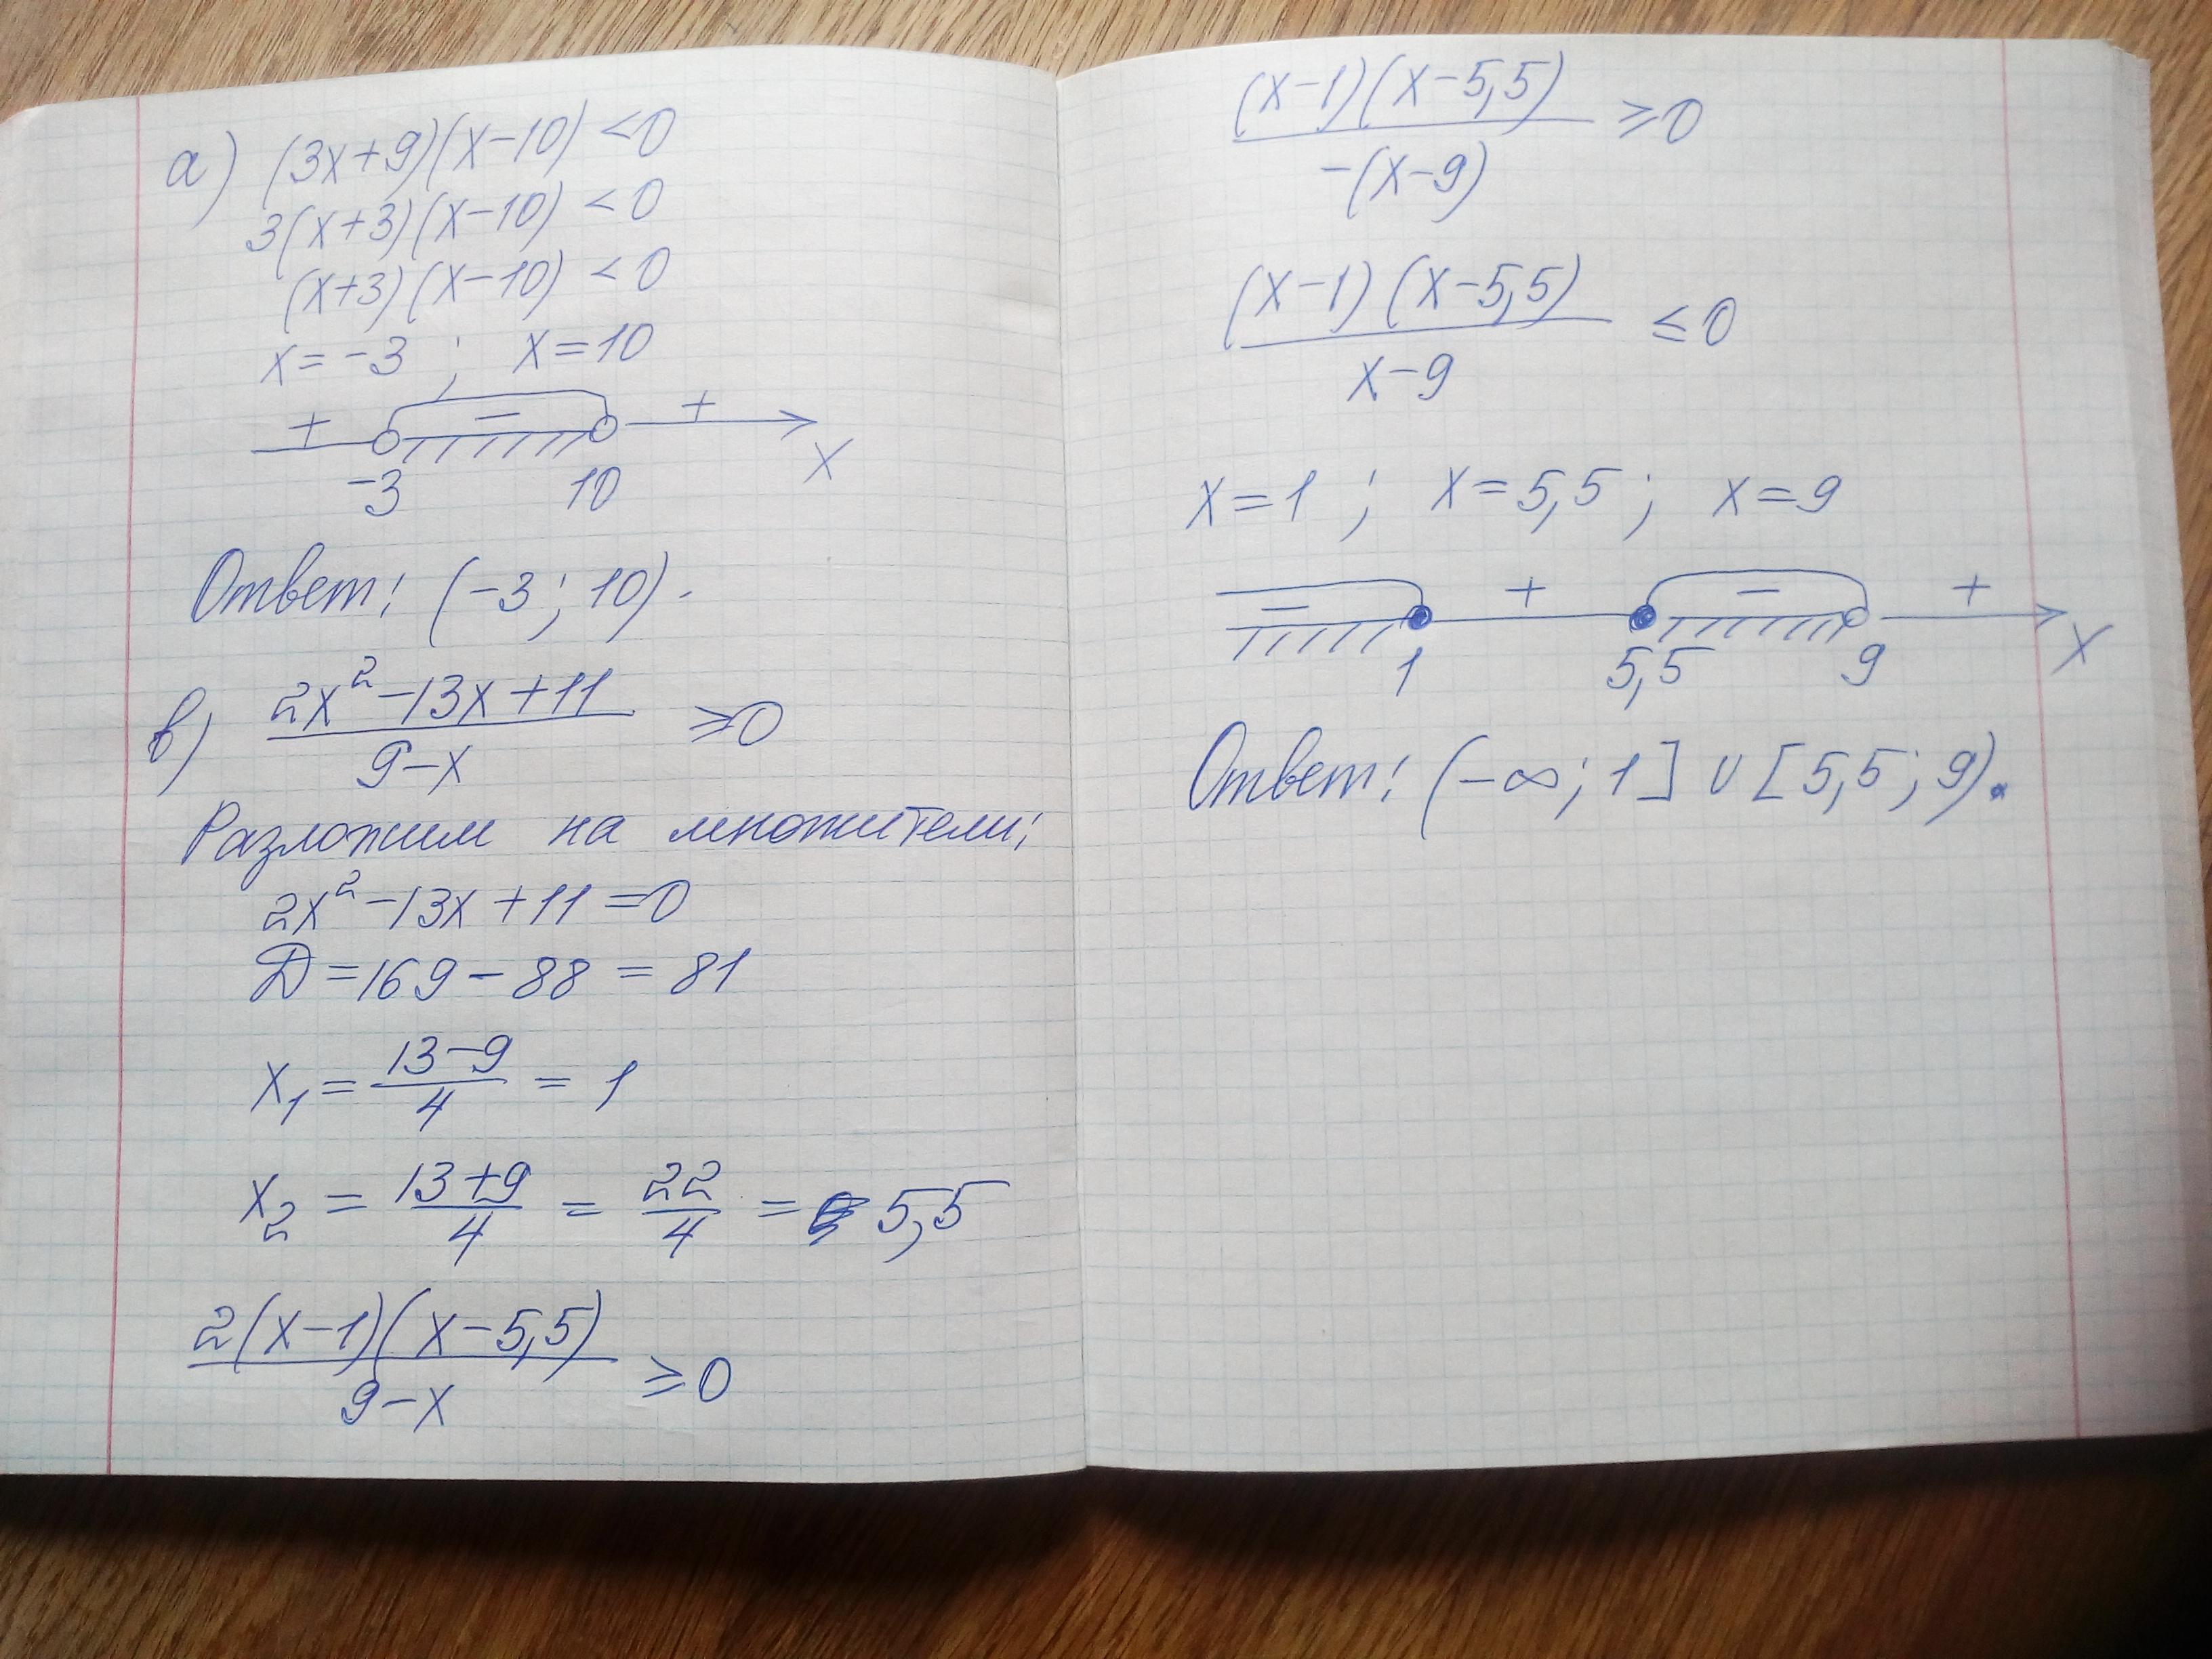 а) (3x+9)(x-10)<0
3(x+3)(x-10)<0
(x+3)(x-10)<0
x=-3 ; x=10
+ - +
-3 10 x
Ответ: (-3; 10).
в) (2x²-13x+11)/(9-x) ≥0
Разложим на множители:
2x²-13x+11=0
Д=169-88=81
x₁=(13-9)/4=1
x₂=(13+9)/4=22/4=5,5
2(x-1)(x-5,5)/(9-x) ≥0
(x-1)(x-5,5)/(-(x-9)) ≥0
(x-1)(x-5,5)/(x-9) ≤0
x=1 ; x=5,5 ; x=9
- + - +
1 5,5 9 x
Ответ: (-∞; 1] ∪ [5,5; 9).